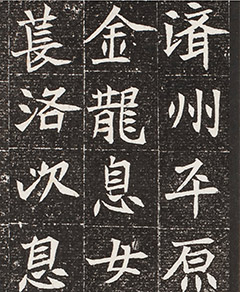 済州平原
金龍息女
萇洛次息